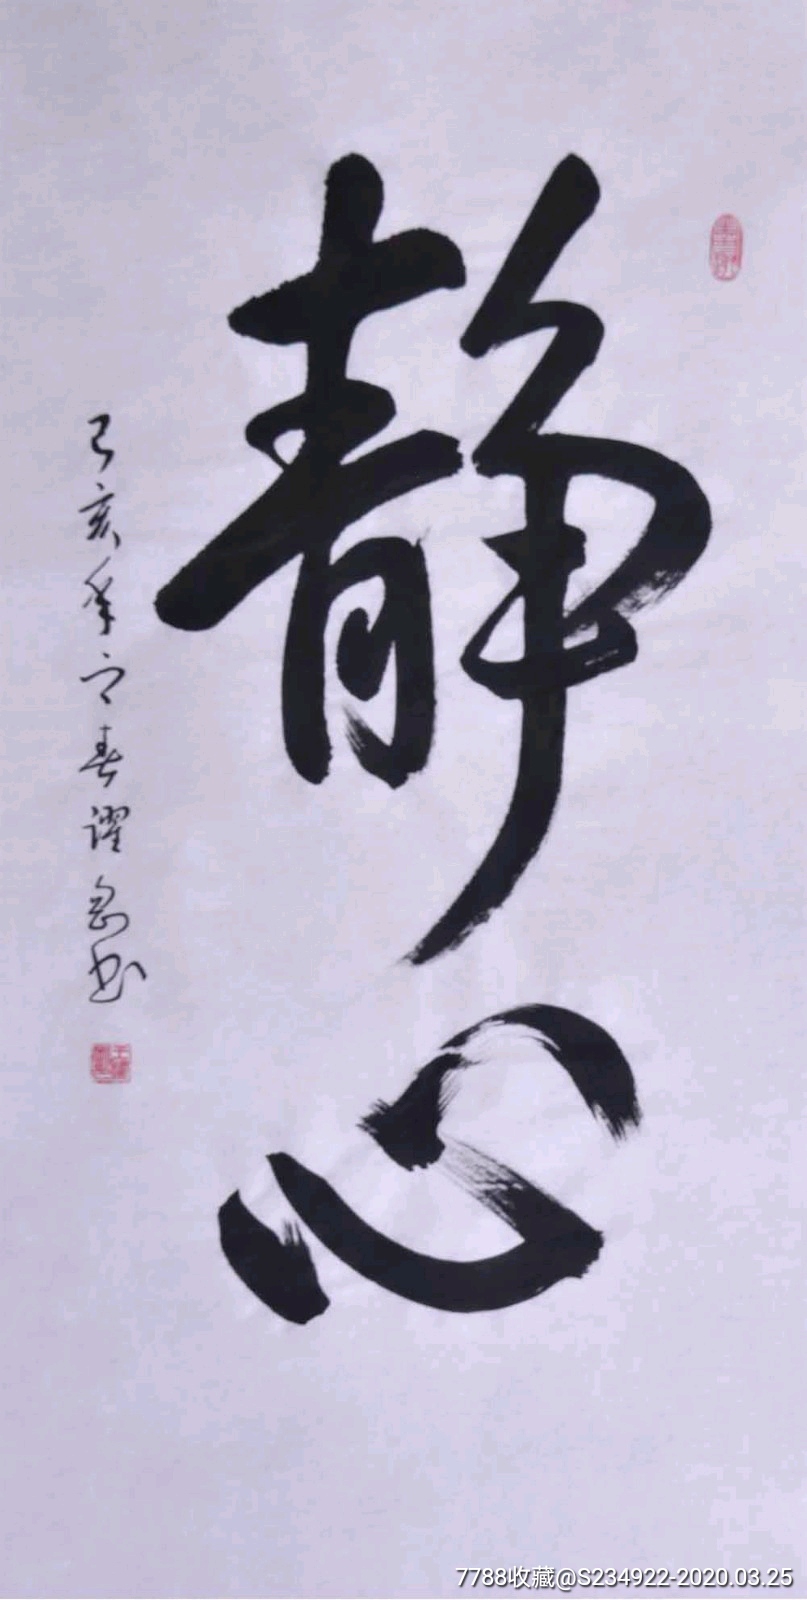 静心
己亥年之春 书
7788收藏@S234922-2020.03.25